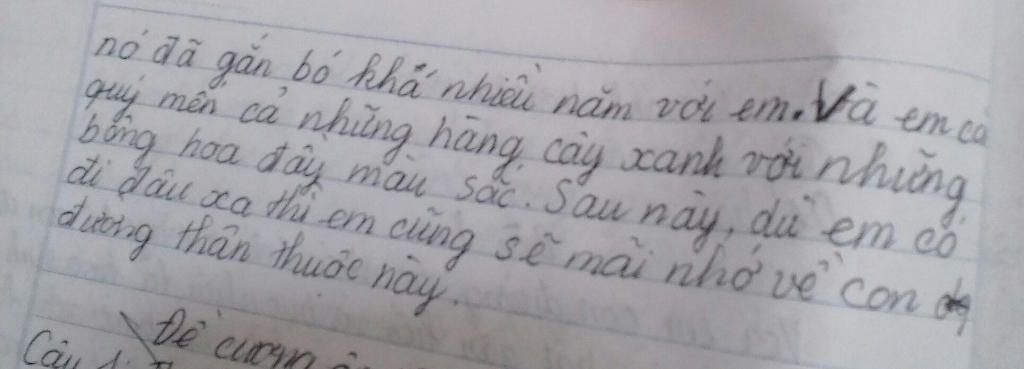 nó đã gắn bó khá nhiều năm với em. Và em cả
quý mến cả những hàng cây xanh với những
bông hoa đầy màu sắc. Sau này, dù em có
đi đâu xa thì em cũng sẽ mãi nhớ về con
đường thân thuộc này.
Đề cương
Câu 1: